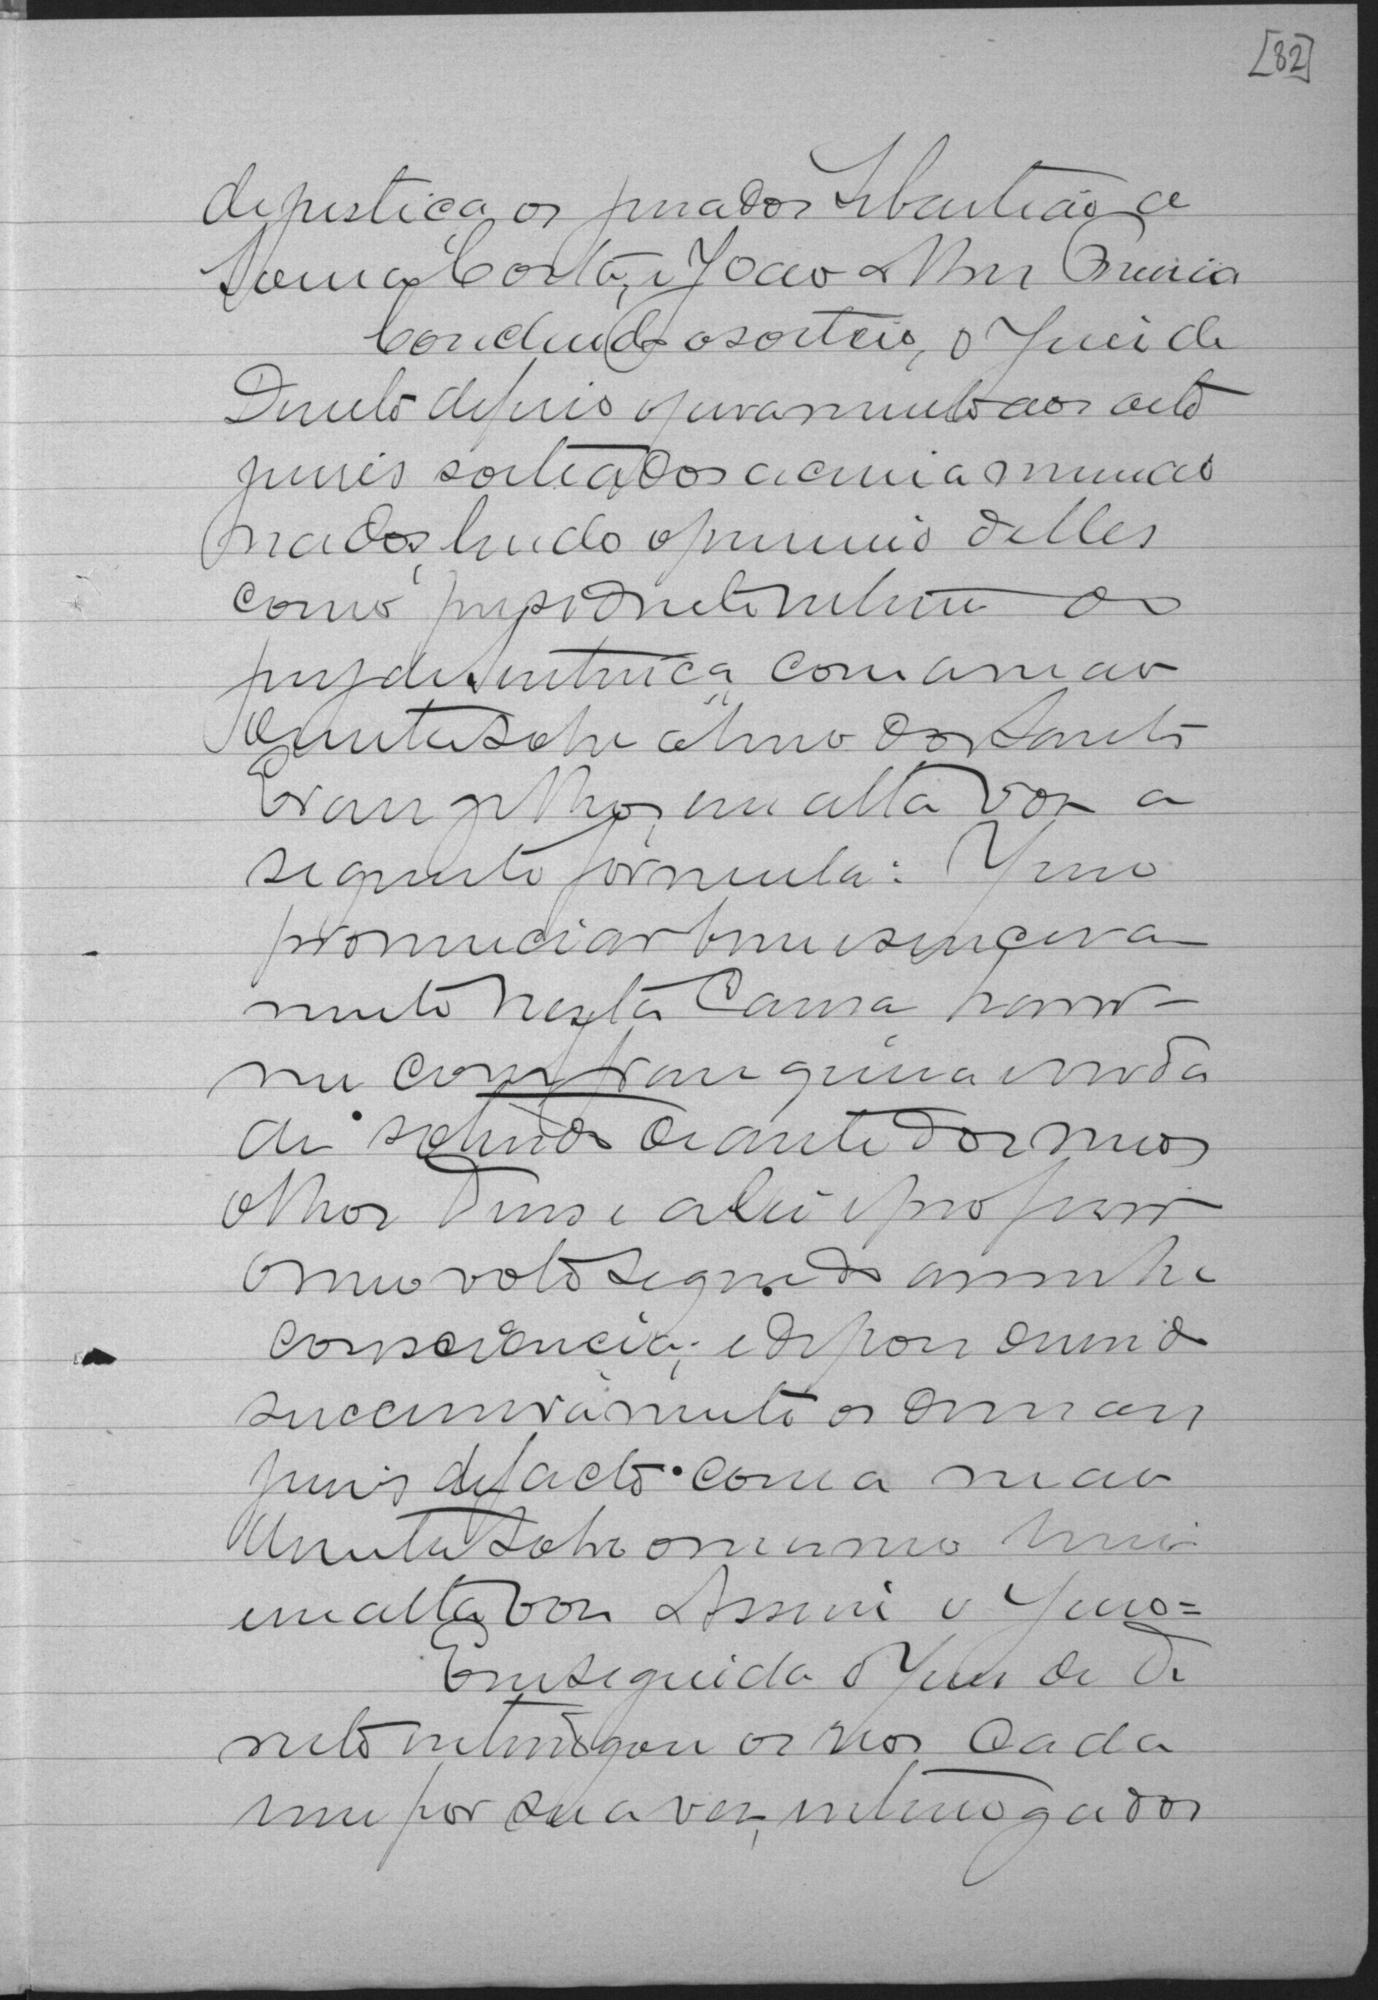 [82]
de justiça, os jurados Sebastião de
Souza Costa, e João
Concluido o sorteio, o Juiz de
Direito deferio o juramento aos oito
juizes sorteados acima mencio
nados, lendo o primeiro delles
como presidente interino do
jury de sentença, com a mão
direita sobre o livro dos Santos
Evangelhos, em alta voz a
seguinte formula: Juro
pronunciar bem e sincera
mente nesta Causa haver-
me com franqueza e verda
de só tendo deante dos meos
olhos Deus e a lei e proferir
o meo voto segundo a minha
consciencia; e dizendo
successivamente os demais
juizes de facto com a mão
direita sobre o mesmo livro
em alta voz Assim o Juro=
Em seguida o Juiz de Di
reito interrogou os reos cada
um por sua vez, interrogados